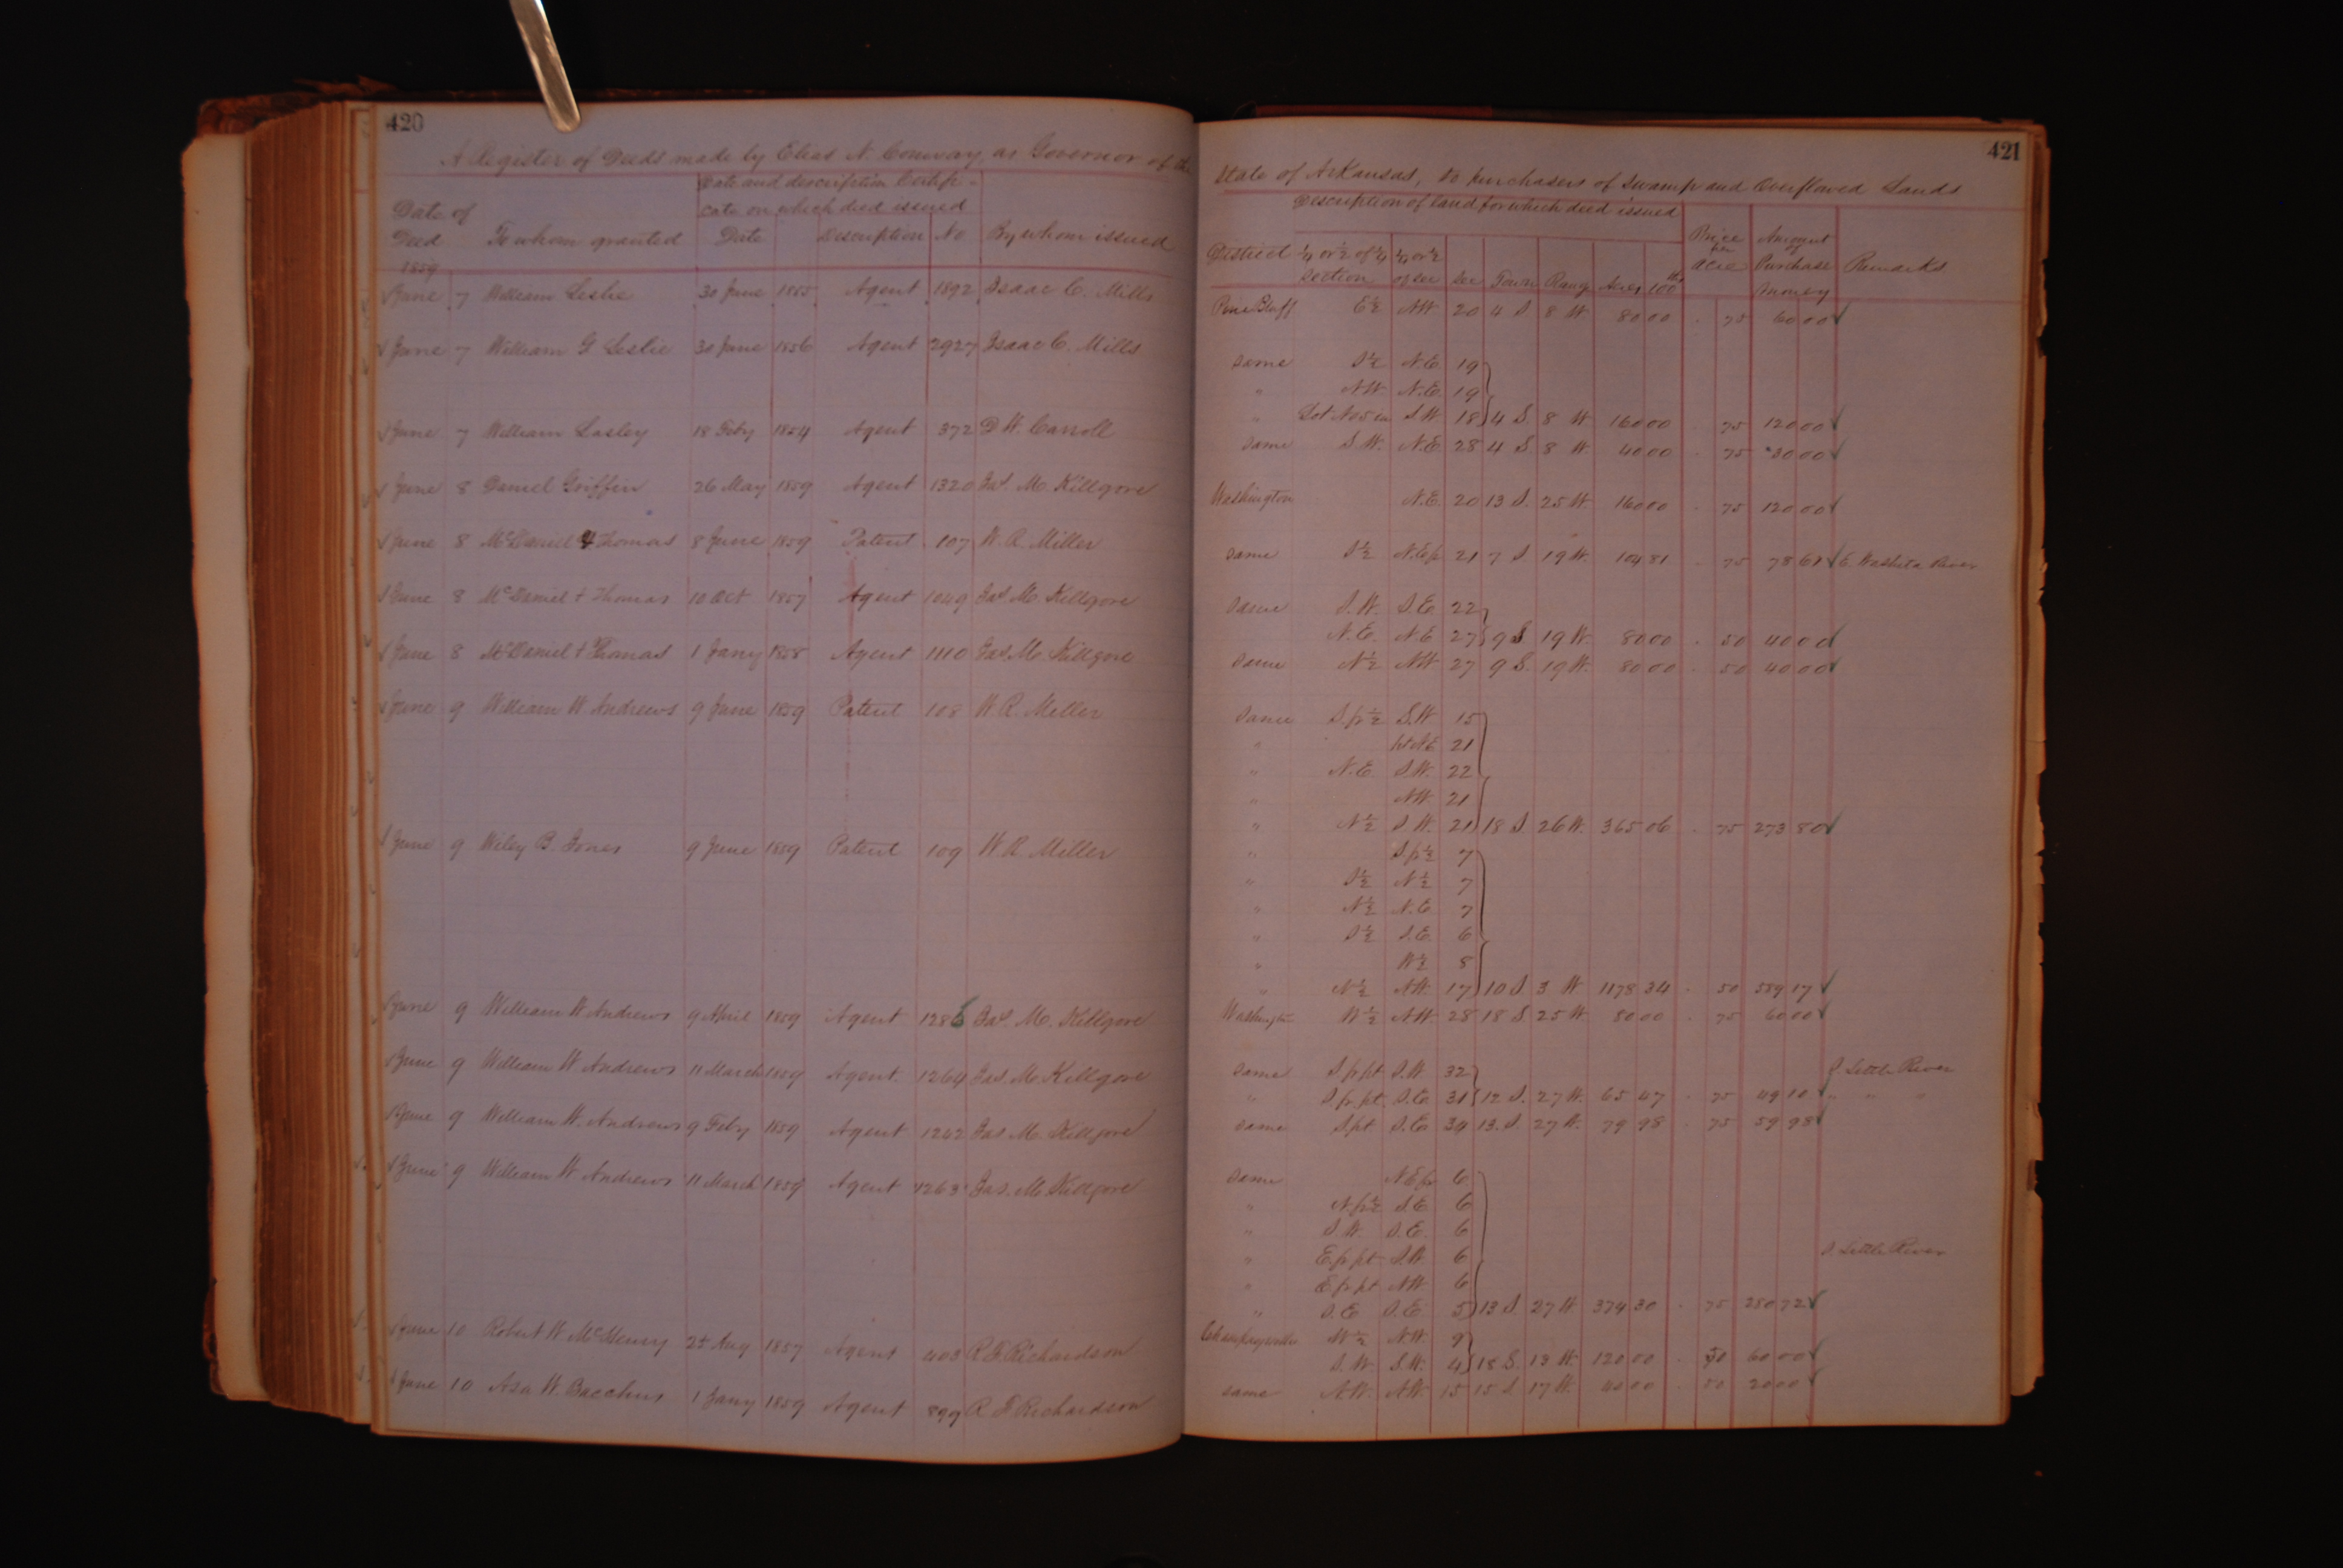 420
A Register of Deeds made by Elias N. Conway, as Governor of the
Date and description Certifi-
cate on which deed issued
Date of
Deed To whom granted Date Description No By whom issued
1859
June 7 William Leslie 30 June 1855 Agent 1892 Isaac C. Mills
June 7 William G Leslie 30 June 1856 Agent 2927 Isaac C. Mills
June 7 William Lasley 18 Feby 1854 Agent 372 D. W. Carroll
June 8 Daniel Griffin 26 May 1859 Agent 1320 Jas. M. Killgore
June 8 McDaniel & Thomas 8 June 1859 Patent 107 W. R. Miller
June 8 McDaniel + Thomas 10 Oct 1857 Agent 1049 Jas. M. Killgore
June 8 McDaniel + Thomas 1 Jany 1858 Agent 1110 Jas. M. Killgore
June 9 William W Andrews 9 June 1859 Patent 108 W. R. Miller
June 9 Wiley B. Jones 9 June 1859 Patent 109 W. R. Miller
June 9 William W Andrews 9 April 1859 Agent 1286 Jas. M. Killgore
June 9 William W. Andrews 11 March 1859 Agent 1264 Jas. M. Killgore
June 9 William W. Andrews 9 Feby 1859 Agent 1242 Jas. M. Killgore
June 9 William W Andrews 11 March 1859 Agent 1263 Jas. M. Killgore
June 10 Robert W. McHenry Aug 1857 Agent 403 R. F. Richardson
June 10 Asa W. Bacchus 1 Jany 1859 Agent 899 R. F. Richardson
421
State of Arkansas, to purchasers of Swamp and Overflowed Lands
Description of land for which deed issued
District ¼ or ½ of ¼ section ¼ or ½ of sec Sec Town Range Acres 100th Price per acre Amount of Purchase money Remarks
Pine Bluff E½ NW 20 4 S 8 W 80 00 75 60 00
same S½ N.E. 19
" NW N.E. 19
" Lot No 5 in S.W. 18 4 S. 8 W 160 00 75 120 00
same S.W. N.E. 28 4 S 8 W. 40 00 75 30 00
Washington N.E. 20 13 S. 25 W 160 00 75 120 00
same S½ N.E.fr 21 7 S. 19 W. 104 81 75 78 61 E. Washita River
same S.W. S.E. 22
N.E. N.E 27 9 S 19 W. 80 00 50 40 00
same N½ NW 27 9 S. 19 W. 80 00 50 40 00
same S.fr½ S.W 15
" 21
" N.E. S.W. 22
" NW 21
" N½ S.W. 21 18 S. 26 W. 365 06 75 273 80
" S.fr½ 7
" S½ N½ 7
" N½ N.E. 7
" S½ S.E. 6
" W½ 8
" N½ NW. 17 10 S. 3 W 1178 34 50 589 17
Washington W½ NW. 28 18 S. 25 W. 80 00 75 60 00
same S.fr.pt S.W 32 S. Little River
" S.fr.pt. S.E. 31 12 S. 27 W. 65 47 75 49 10 " " "
same S.pt. S.E. 13. S 27 W. 79 98 75 59 98
same N.E.fr 6
" N.fr½ S.E. 6
" S.W. S.E. 6
" E.fr.pt S.W 6 S. Little River
" E.fr.pt NW 6
" S.E S.E. 5 13 S. 27 W 374 30 75 280 72
Champagnolle W½ NW. 9
S.W. S.W. 4 18 S. 18 W. 120 00 50 60 00
same NW. NW 15 15 S. 17 W. 40 00 50 20 00